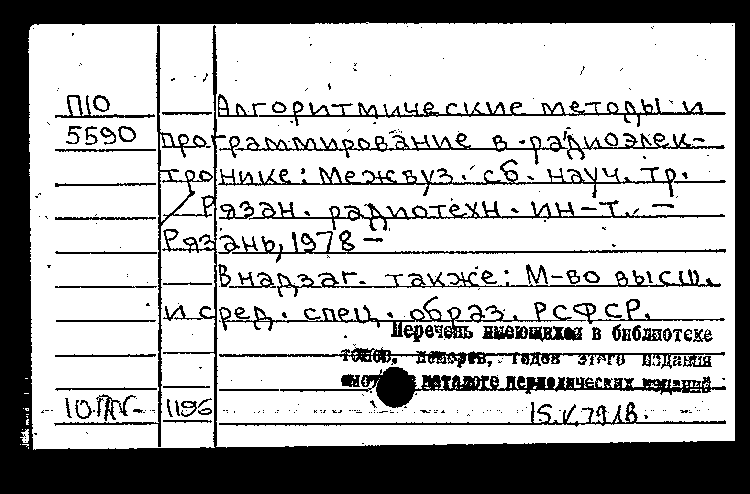 П10 Алгоритмические методы и
5590 программирование в радиоэлек-
тронике: Межвуз. сб. науч. тр.
/ Рязан. радиотехн. ин-т. —
Рязань, 1978 —
В надзаг. также: М-во высш.
и сред. спец. образ. РСФСР.
Перечень имеющихся в библиотеке
томов, номеров, годов этого издания
каталоге периодических изданий
1196 15.V.79